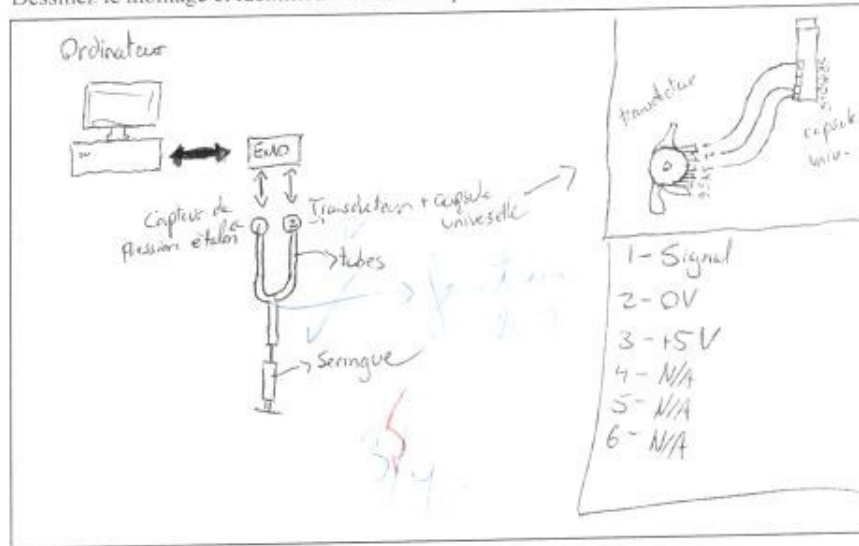 Dessinez le montage et
Ordinateur
ExAO
Capteur de
Pression étalon
1
2
Transducteur + capsule
universelle
tubes
Seringue
transducteur
capsule
univ.
1 - Signal
2 - 0V
3 - +5V
4 - N/A
5 - N/A
6 - N/A